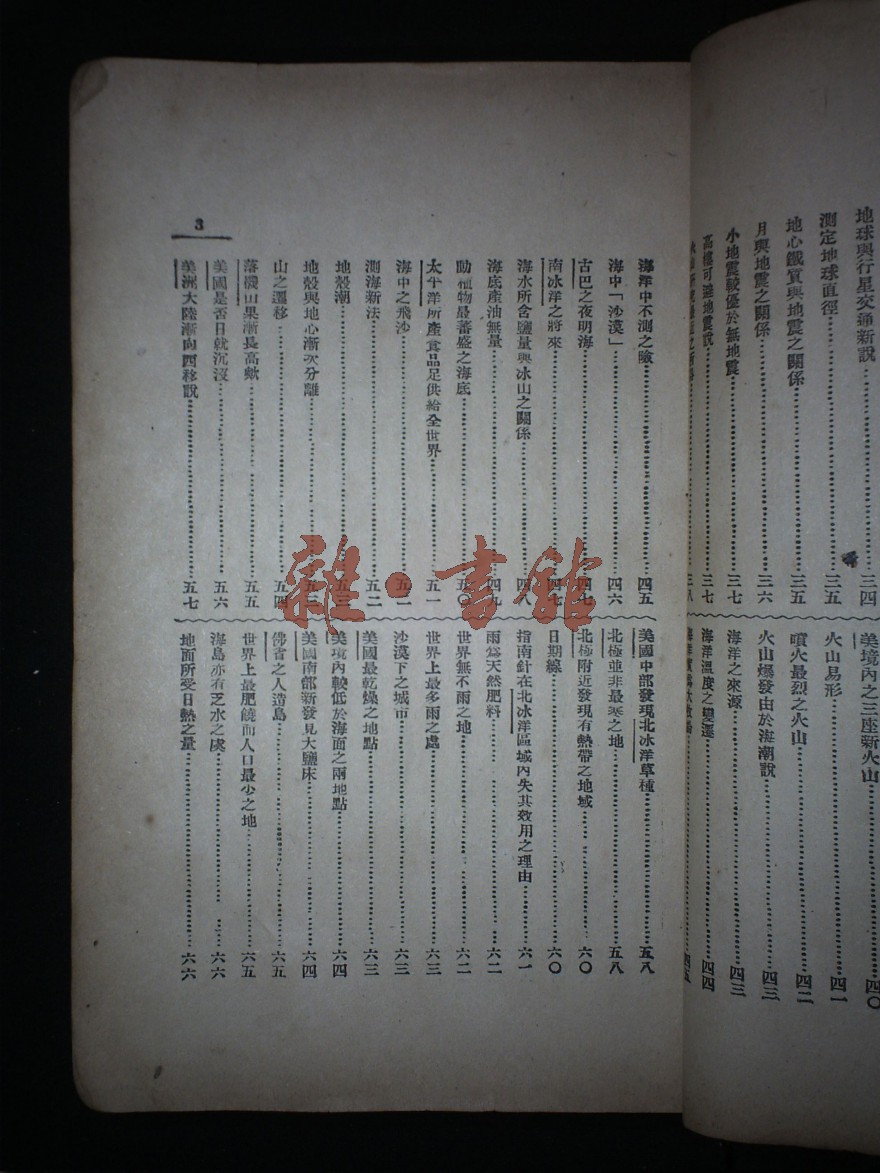 地球與行星交通新說……三四
測定地球直徑……三五
地心鐵質與地震之關係……三五
月與地震之關係……三六
小地震較優於無地震……三七
高樓可避地震說……三七
……三八
美境內之三座新火山……四〇
火山易形……四一
噴火最烈之火山……四二
火山爆發由於海潮說……四三
海洋之來源……四三
海洋溫度之變遷……四四
海洋……四五
3
海洋中不測之險……四五
海中「沙漠」……四六
古巴之夜明海……四七
南冰洋之將來……四七
海水所含鹽量與冰山之關係……四八
海底產油無量……四九
動植物最蕃盛之海底……五
太平洋所產食品足供給全世界……五一
海中之飛沙……五
測海新法……五二
地殼潮……五三
地殼與地心漸次分離……五三
山之遷移……五四
落機山果漸長高歟……五五
美國是否日就沉沒……五六
美洲大陸漸向西移說……五七
美國中部發現北冰洋草種……五八
北極並非最寒之地……五八
北極附近發現有熱帶之地域……六〇
日期線……六〇
指南針在北冰洋區域內失其效用之理由……六一
雨為天然肥料……六二
世界無不雨之地……六二
世界上最多雨之處……六三
沙漠下之城市……六三
美國最乾燥之地點……六三
美境內較低於海面之兩地點……六四
美國南部新發見大鹽床……六四
佛省之人造島……六五
世界上最肥饒而人口最少之地……六五
海島亦有乏水之虞……六六
地面所受日熱之量……六六
雜·書館